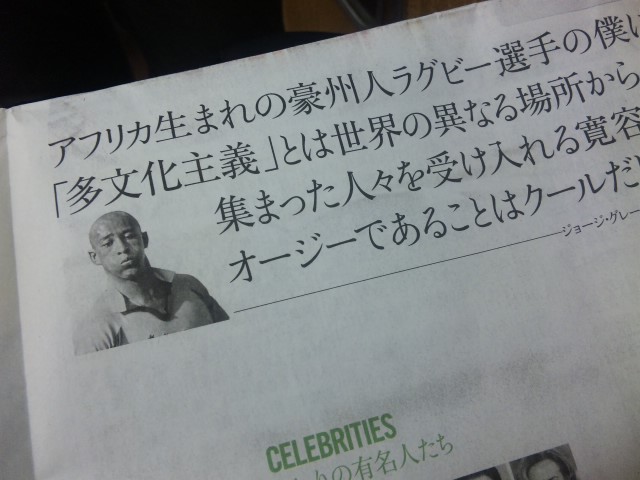 アフリカ生まれの豪州人ラグビー選手の僕に
「多文化主義」とは世界の異なる場所から
集まった人々を受け入れる寛容
オージーであることはクールだ
ジョージ・グレー
CELEBRITIES
りの有名人たち